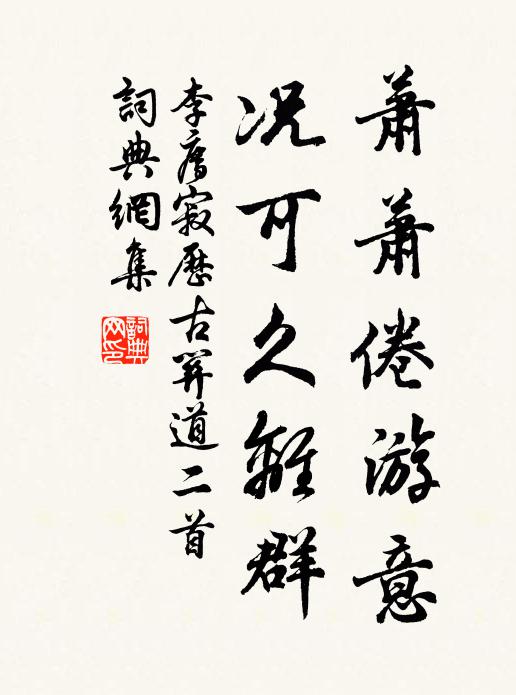 蕭蕭倦游意
况可久離群
李廌寂歷古羿道二首
詞典網集
詞典
网印